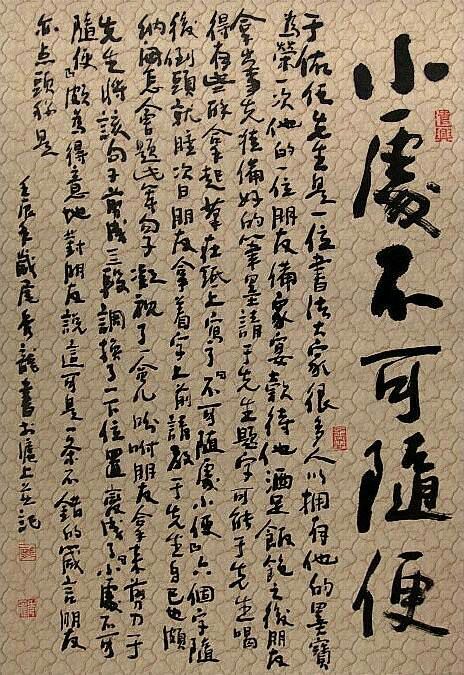 小處不可隨便
于佑任先生是一位書法大家很多人以擁有他的墨寶
為榮一次他的一位朋友備家宴款待他酒足飯飽之後朋友
拿出事先准備好的筆墨請于先生題字可能于先生喝
得有些醉拿起筆在紙上寫了“不可隨處小便”六個字隨
後倒頭就睡次日朋友拿着字上前請教于先生自己也頗
納悶怎會題此等句子凝視了一會儿吩咐朋友拿来剪刀于
先生將該句子剪成三段調換了一下位置變成了“小處不可
隨便”頗為得意地對朋友說這可是一条不錯的箴言朋友
亦点頭称是
壬辰年歲尾秀龍書於滬上并記